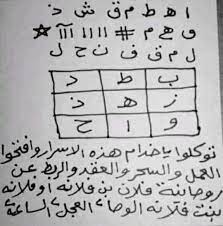 ا ه ط م ق ش ذ
و ه م # ااا اا ☆
ل م ق ف ن ح ل
ب ط د
ز ه ذ
و ا ح
توكلوا يا خدام هذه الاسرار وافتحوا
العمل والسحر والعقد والربط عن
روحانية فلان بن فلانه او فلانه
بنت فلانه الوحا العجل الساعة